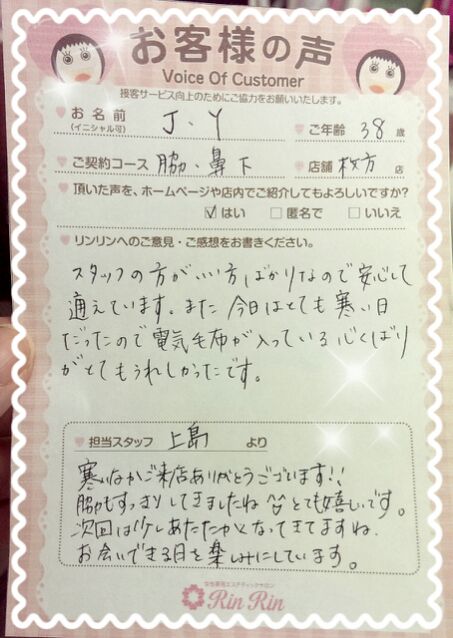 お客様の声
Voice Of Customer
接客サービス向上のためにご協力をお願いいたします。
お名前 J・Y ご年齢 38 歳
(イニシャル可)
ご契約コース 脇・鼻下 店舗 枚方 店
頂いた声を、ホームページや店内でご紹介してもよろしいですか?
☑はい □匿名で □いいえ
リンリンへのご意見・ご感想をお書きください。
スタッフの方がいい方ばかりなので安心して
通えています。また今日はとても寒い日
だったので電気毛布が入っている心くばり
がとてもうれしかったです。
担当スタッフ 上島 より
寒いなかご来店ありがとうございます!!
脇もすっきりしてきましたね^^とても嬉しいです。
次回は少しあたたかくなってきてますね。
お会いできる日を楽しみにしています。
女性専用エステティックサロン
Rin Rin